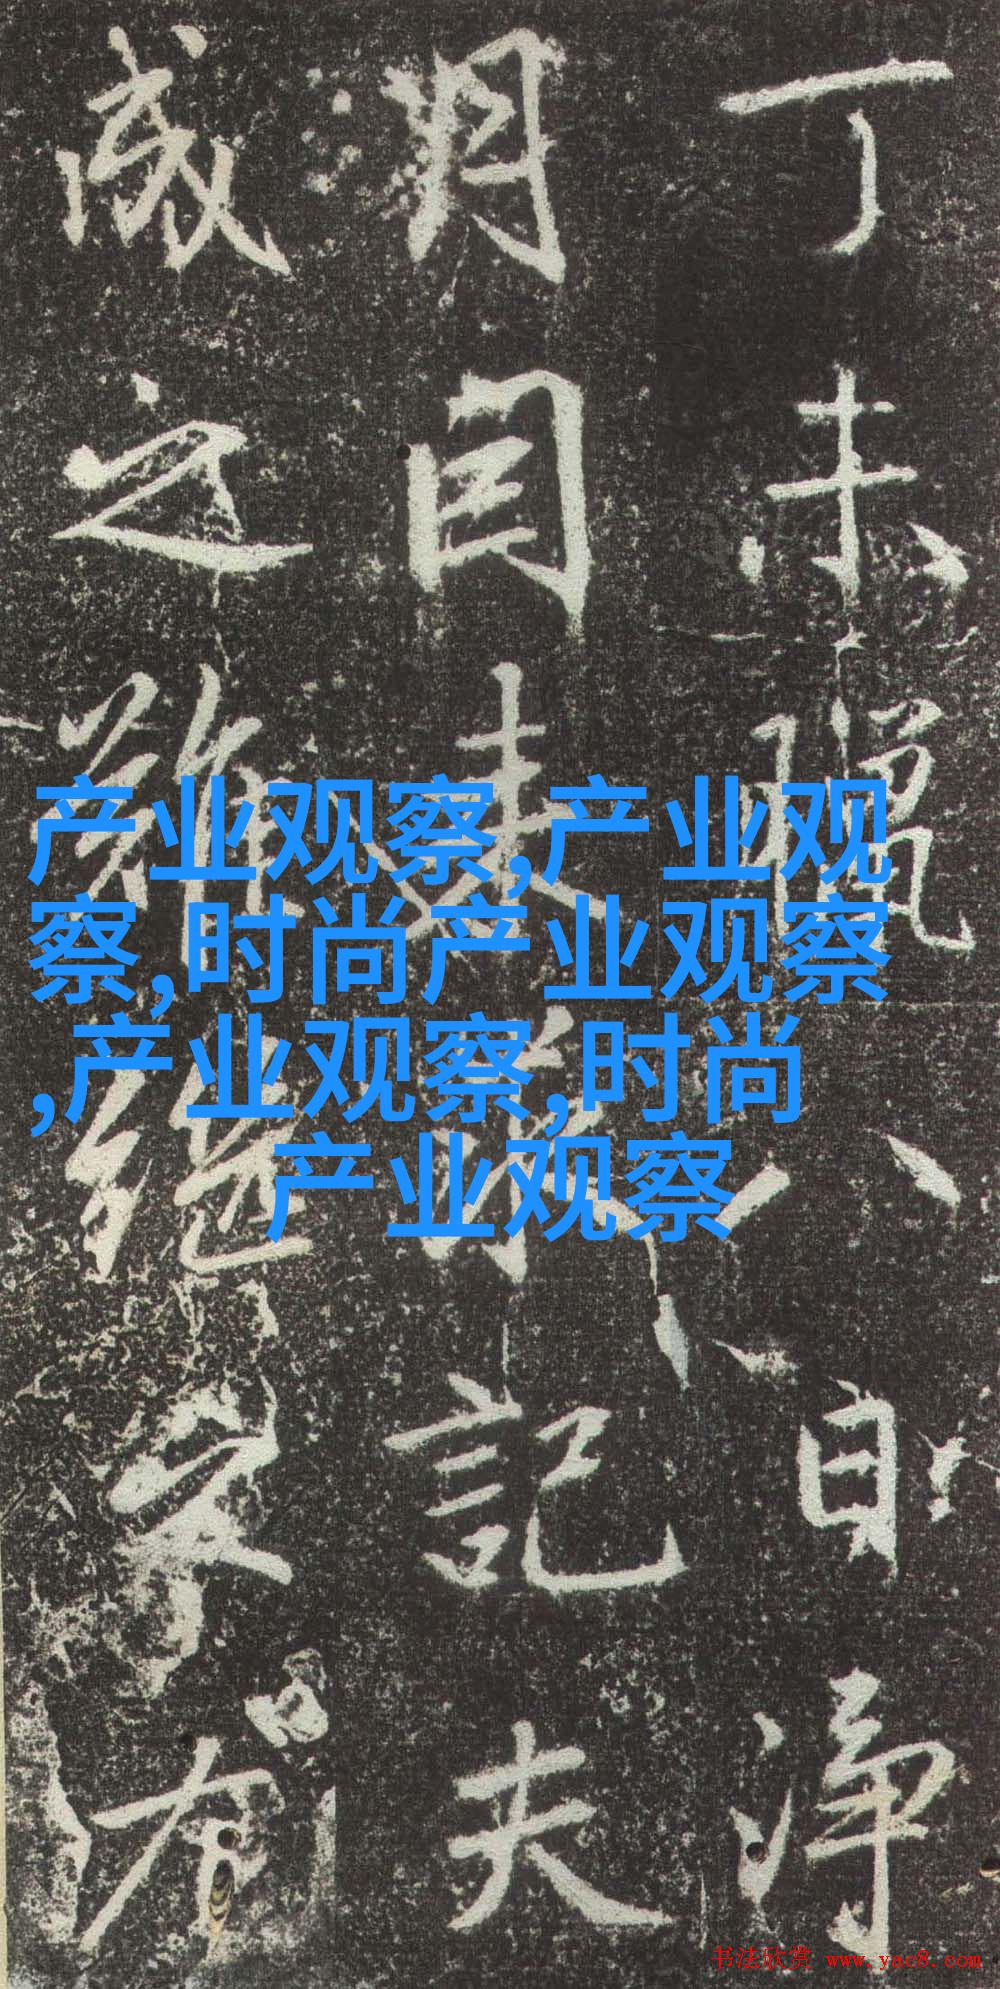 丁未隴八日淨
月目来昧記夫
成之難繼家有
产业观察,产业观
察,时尚产业观察
,产业观察,时尚
产业观察
书法欣赏 www.yac8.com